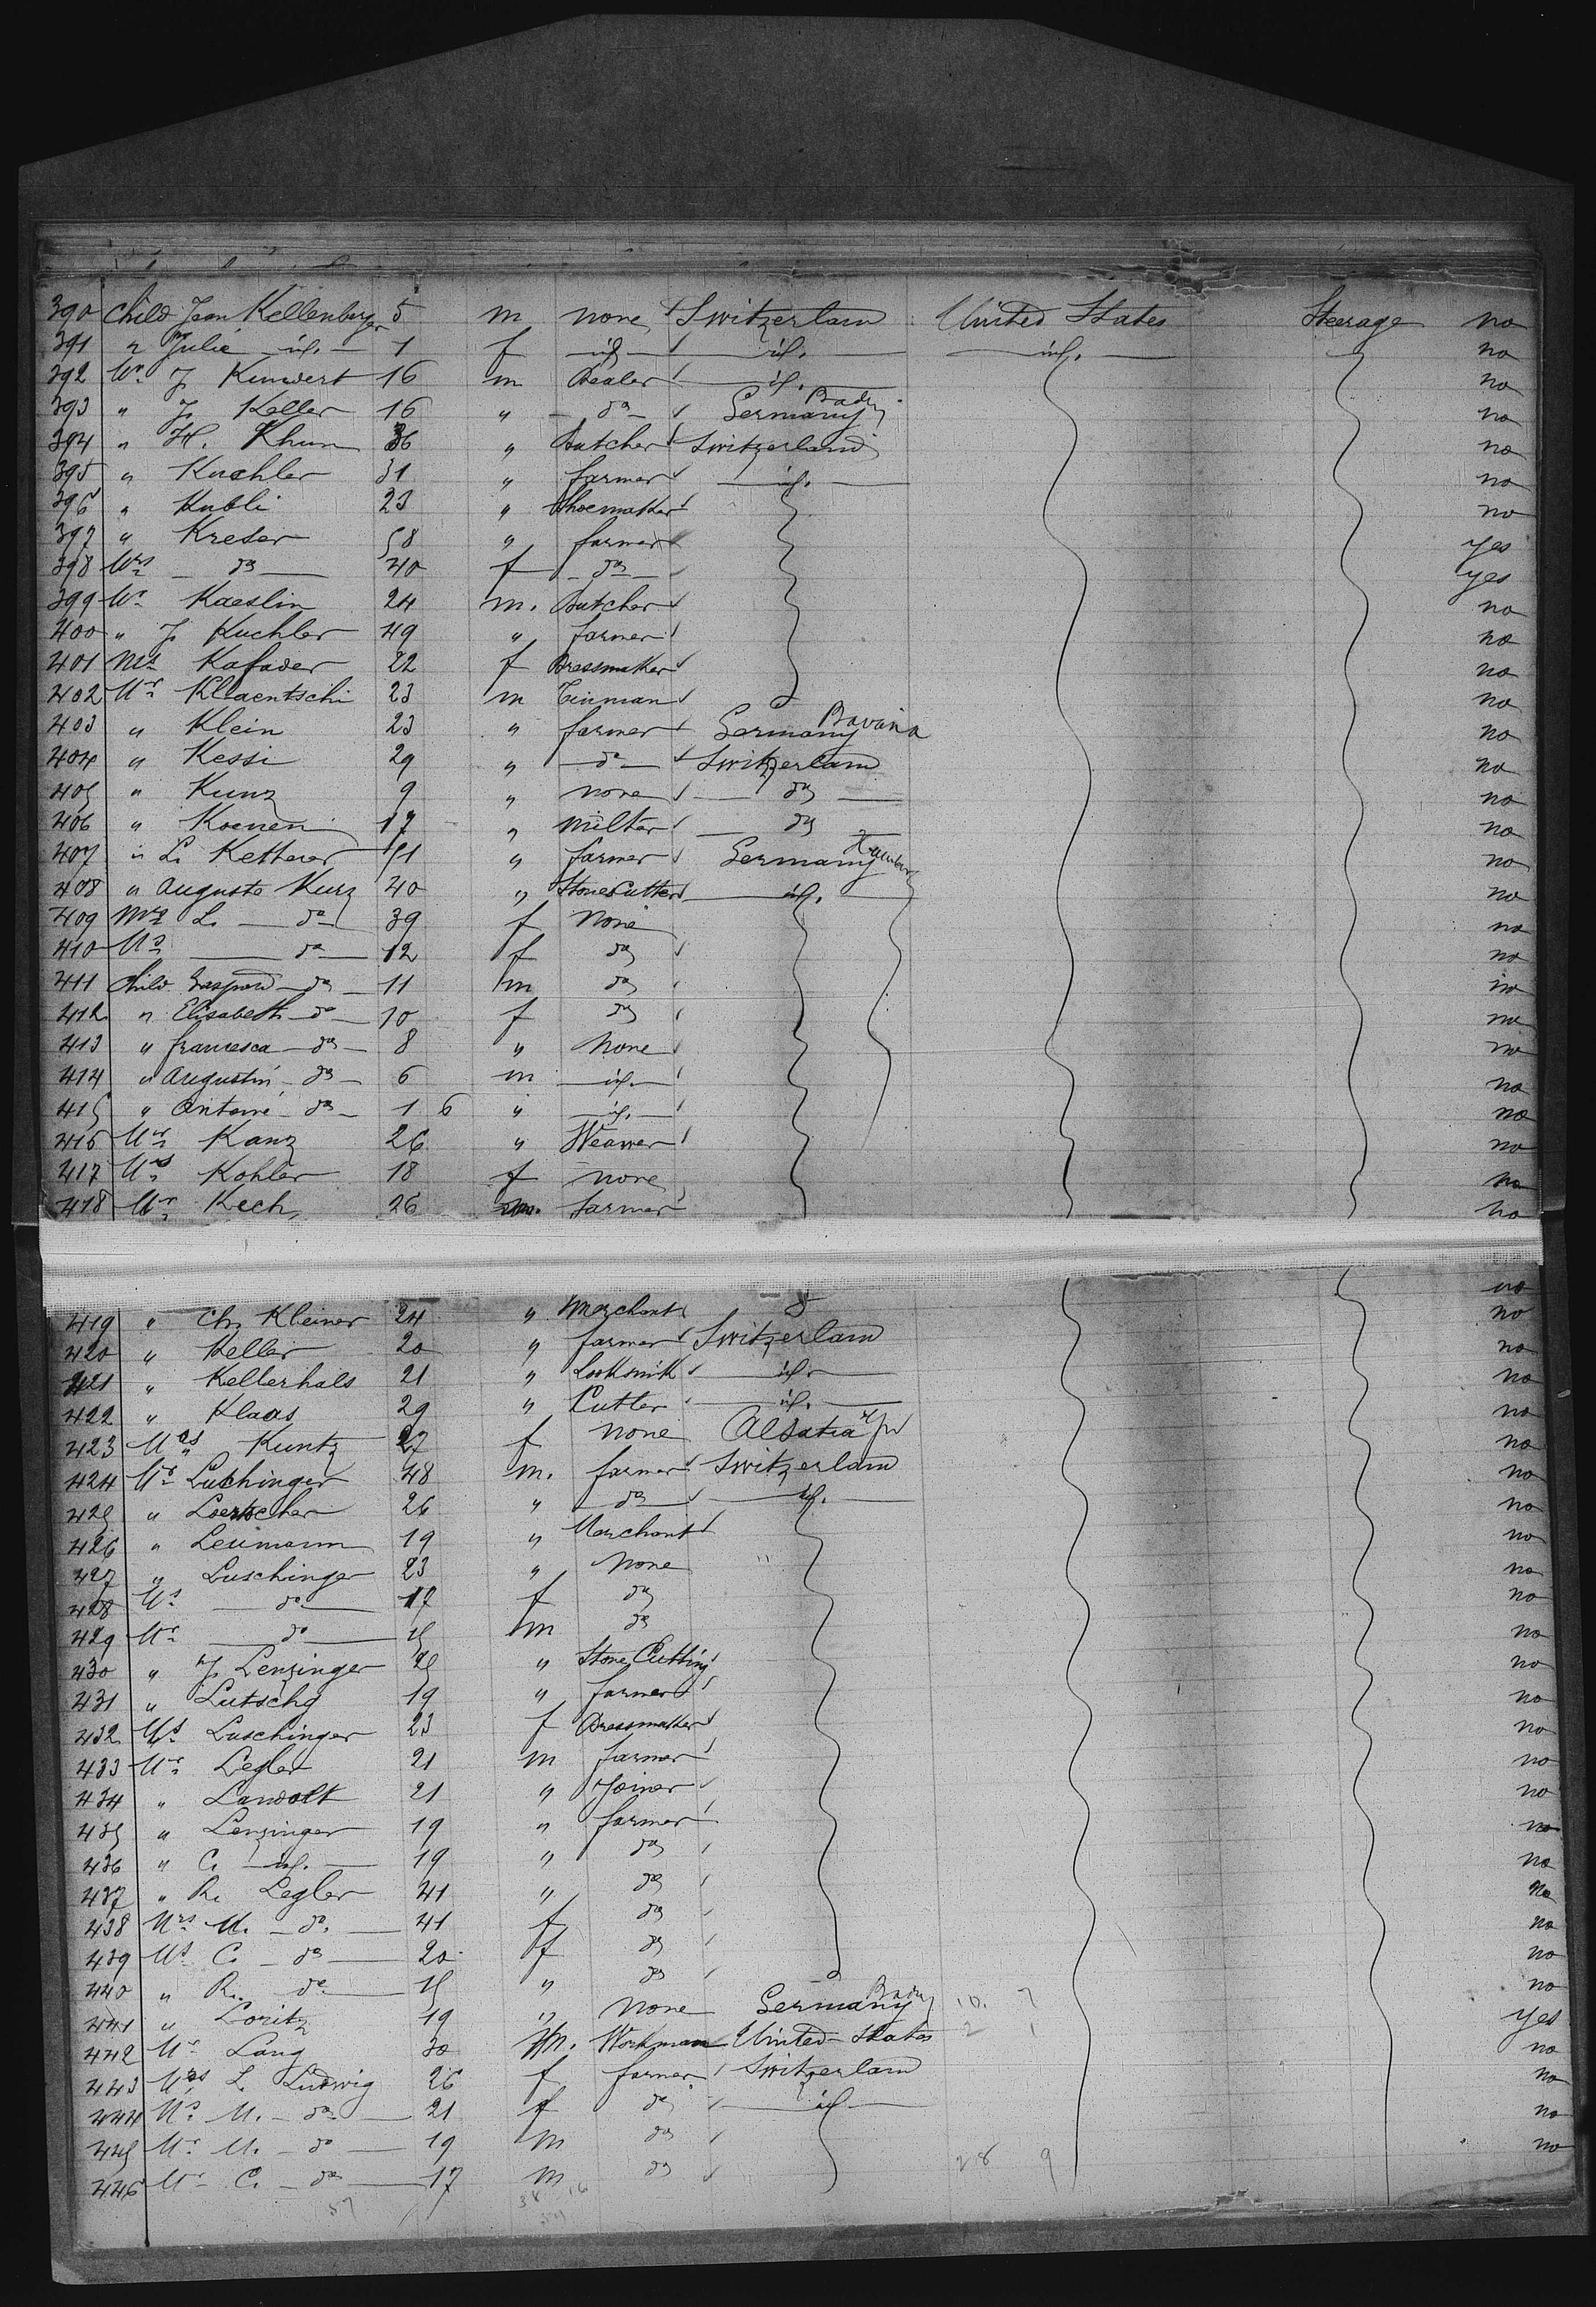 390 Child Jean Kellenberger 5 m none Switzerland United States Steerage no
391 " Julie id. 1 f id. id. id. no
392 Mr J. Kunwert 16 m Dealer id. no
393 " J. Keller 16 " do Germany Baden no
394 " H. Khun 36 " Butcher Switzerland no
395 " Kuchler 31 " farmer id. no
396 " Kubli 23 " Shoemaker no
397 " Kreser 58 " farmer yes
398 Mrs do 40 f do yes
399 Mr Kaeslin 24 m. Butcher no
400 " J. Kuchler 49 " farmer no
401 Ms Kafader 22 f Dressmaker no
402 Mr Klaentschi 23 m Tinman no
403 " Klein 23 " farmer Germany Bavaria no
404 " Kessi 29 " do Switzerland no
405 " Kunz 9 " none do no
406 " Koenen 17 " Milter do no
407 " L. Ketterer 51 " farmer Germany no
408 " Auguste Kurz 40 " Stone Cutter id. no
409 Mrs L. do 39 f None no
410 Ms do 12 f do no
411 Child Gaspard do 11 m do no
412 " Elisabeth do 10 f do no
413 " francesca do 8 " None no
414 " Augustin do 6 m id. no
415 " Antoine do 1 6 " id. no
416 Mr Kanz 26 " Weawer no
417 Ms Kohler 18 f none no
418 Mr Kech 26 m. farmer no
no
419 " Ch. Kleiner 24 " Merchant no
420 " Keller 20 " farmer Switzerland no
421 " Kellerhals 21 " Locksmith id. no
422 " Klaas 29 " Cutler id. no
423 Mrs Kuntz 27 f none Alsatia no
424 Mr Luchinger 48 m. farmer Switzerland no
425 " Loertscher 26 " do id. no
426 " Leumann 19 " Merchant no
427 " Luschinger 23 " None no
428 Ms do 17 f do no
429 Mr do 15 m do no
430 " J. Lenzinger 25 " Stone Cutting no
431 " Lutschg 19 " farmer no
432 Ms Luschinger 23 f Dressmaker no
433 Mr Legler 21 m farmer no
434 " Landolt 21 " Joiner no
435 " Lenzinger 19 " farmer no
436 " C. id. 19 " do no
437 " R. Legler 41 " do no
438 Mrs M. do. 41 f do no
439 Ms C. do 20 f do no
440 " R. do 15 " do no
441 " Loritz 19 " None Germany Baden 10. 7 yes
442 Mr Lang 30 m. Workman United States 2 1 no
443 Mrs L. Ludwig 26 f farmer Switzerland no
444 Ms M. do 21 f do id no
445 Mr M. do 19 m do no
446 Mr C. do 17 m do 28 9